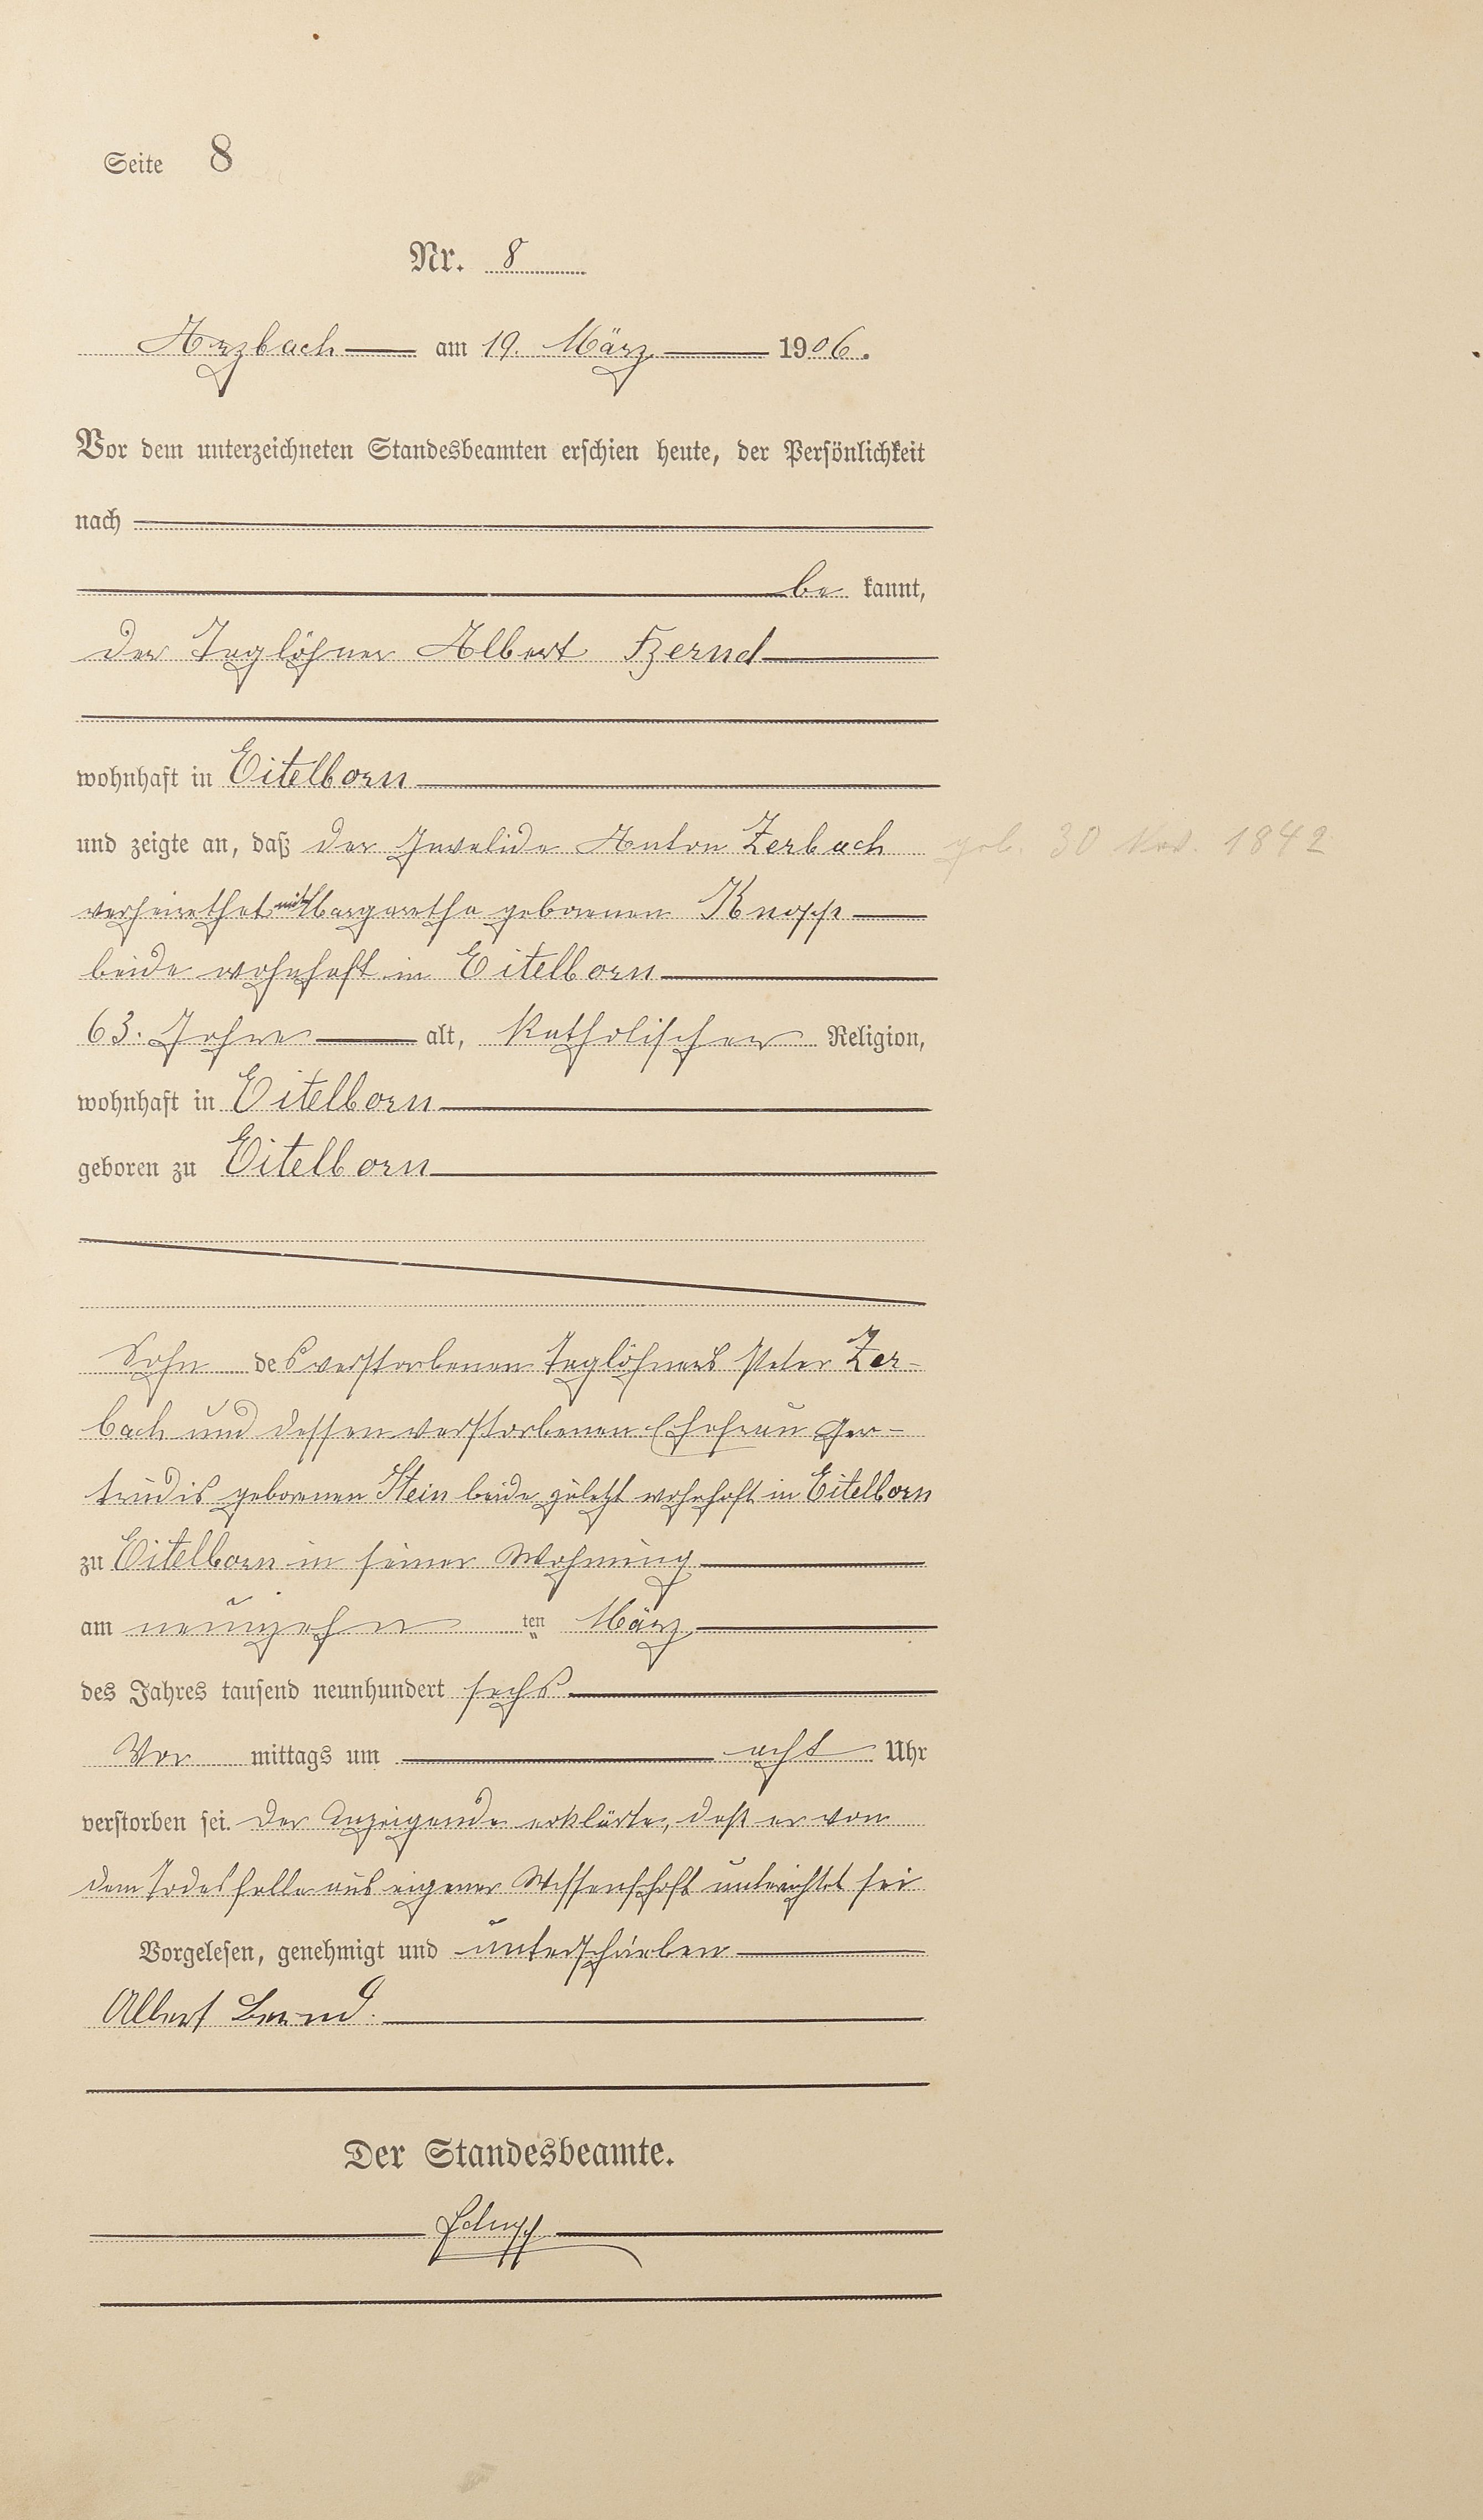 Seite 8
Nr. 8
Arzbach am 19. März 1906.
Vor dem unterzeichneten Standesbeamten erschien heute, der Persönlichkeit
nach
be kannt,
der Taglöhner Albert Bernd
wohnhaft in Eitelborn
und zeigte an, daß der Invalide Anton Zerbach geb. 30 Nov. 1842
verheirathet mit Margaretha geborenen Knopp
beide wohnhaft in Eitelborn
63. Jahre alt, katholischer Religion,
wohnhaft in Eitelborn
geboren zu Eitelborn
Sohn des verstorbenen Taglöhners Peter Zer-
bach und dessen verstorbenen Ehefrau Ger-
trudis geborenen Stein beide zuletzt wohnhaft in Eitelborn
zu Eitelborn in seiner Wohnung
am neunzehn ten März
des Jahres tausend neunhundert sechs
Vor mittags um acht Uhr
verstorben sei. Der Anzeigende erklärte, daß er von
dem Todesfalle aus eigener Wissenschaft unterrichtet sei
Vorgelesen, genehmigt und unterschrieben
Albert Bernd.
Der Standesbeamte.